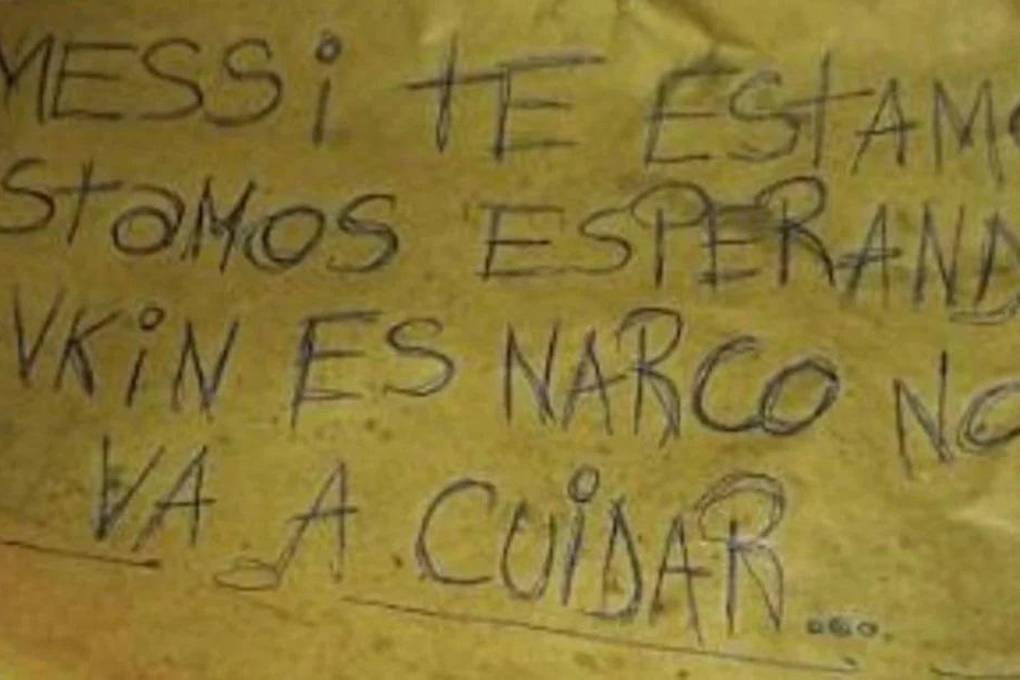 MESSi TE ESTAMO
STaMOS ESPERAND
VKiN ES NARCO NO
VA A CUiDAR...